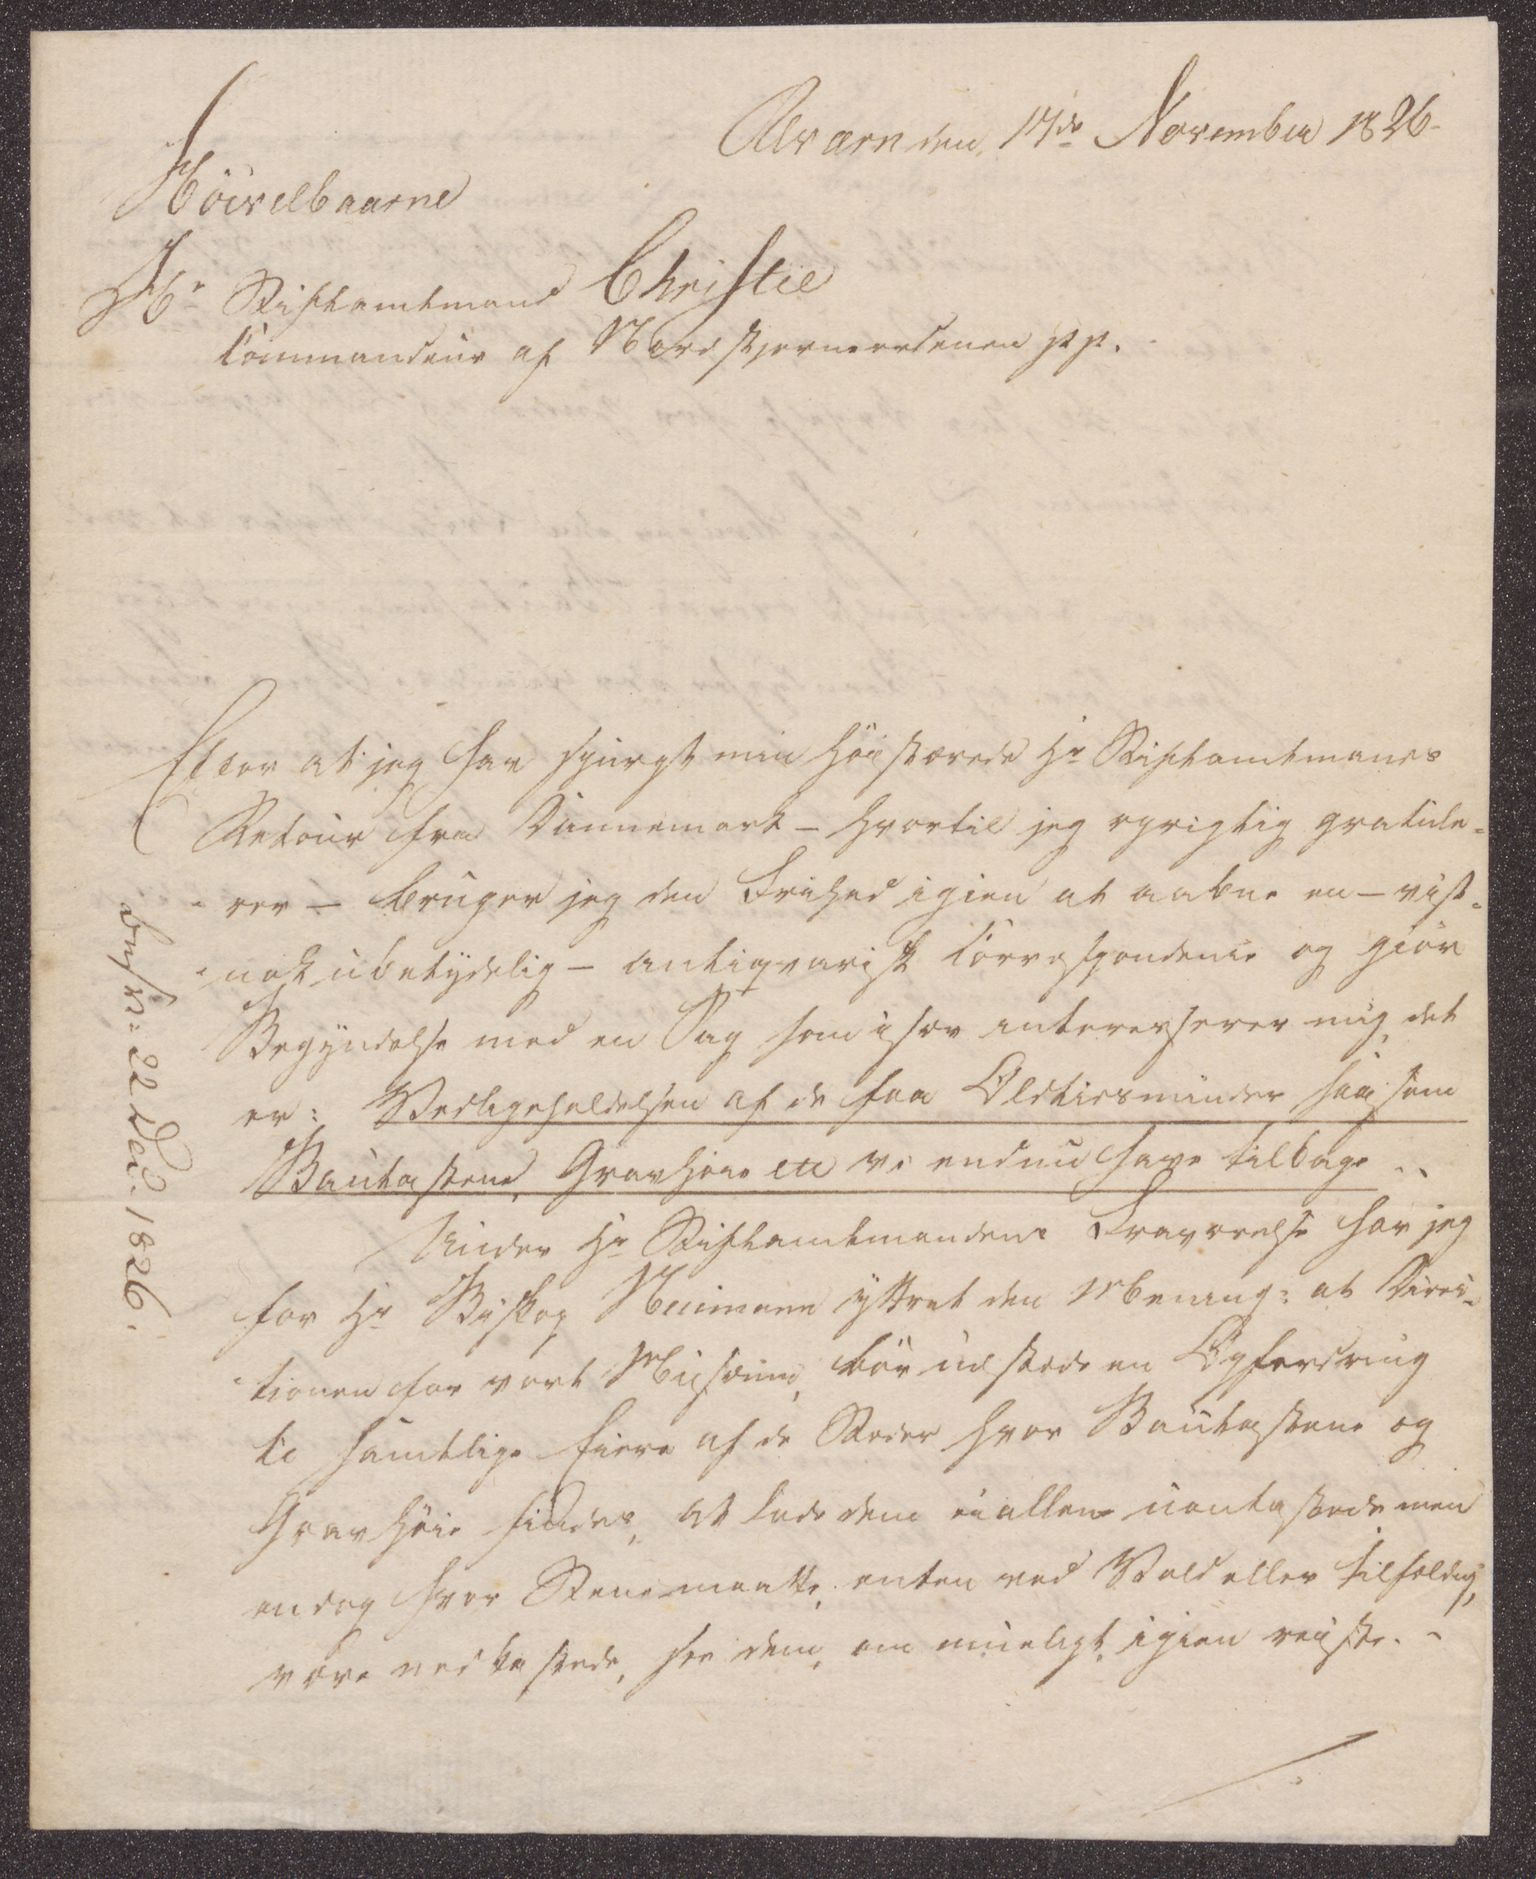 Alværn den 17de November 1826-
Höivelbaarne
Hr Stiftamtmand Christie
Commandeur af Nordstjerneordenen pp.
Efter at jeg har spurgt min höistærede Hr Stiftamtmands
Retour fra Dannemark - hvortil jeg oprigtig gratule-
-rer - bruger jeg den Frihed igien at aabne en - vist-
-nok ubetydelig - antiqvarisk Correspondence og giör
Begyndelse med en Sag som især interesserer mig det
er: Vedligeholdelsen af de faa Oldtidsminder saasom
Bautastene, Gravhöie etc vi endnu have tilbage..
Under Hr Stiftamtmandens Fraværelse har jeg
for Hr Biskop Neumann yttret den Mening: at Direc-
-tionen for vort Musæum, bör udstæde en Opfordring
til samtlige Eiere af de Stæder hvor Bautastene og
Gravhöie findes, at lade dem ei allene uantastede men
endog hvor Stene maatte, enten ved Vold eller tilfældig,
være nedkastede, see dem, om mueligt, igien reiste. -
besv: 22 Dec. 1826.